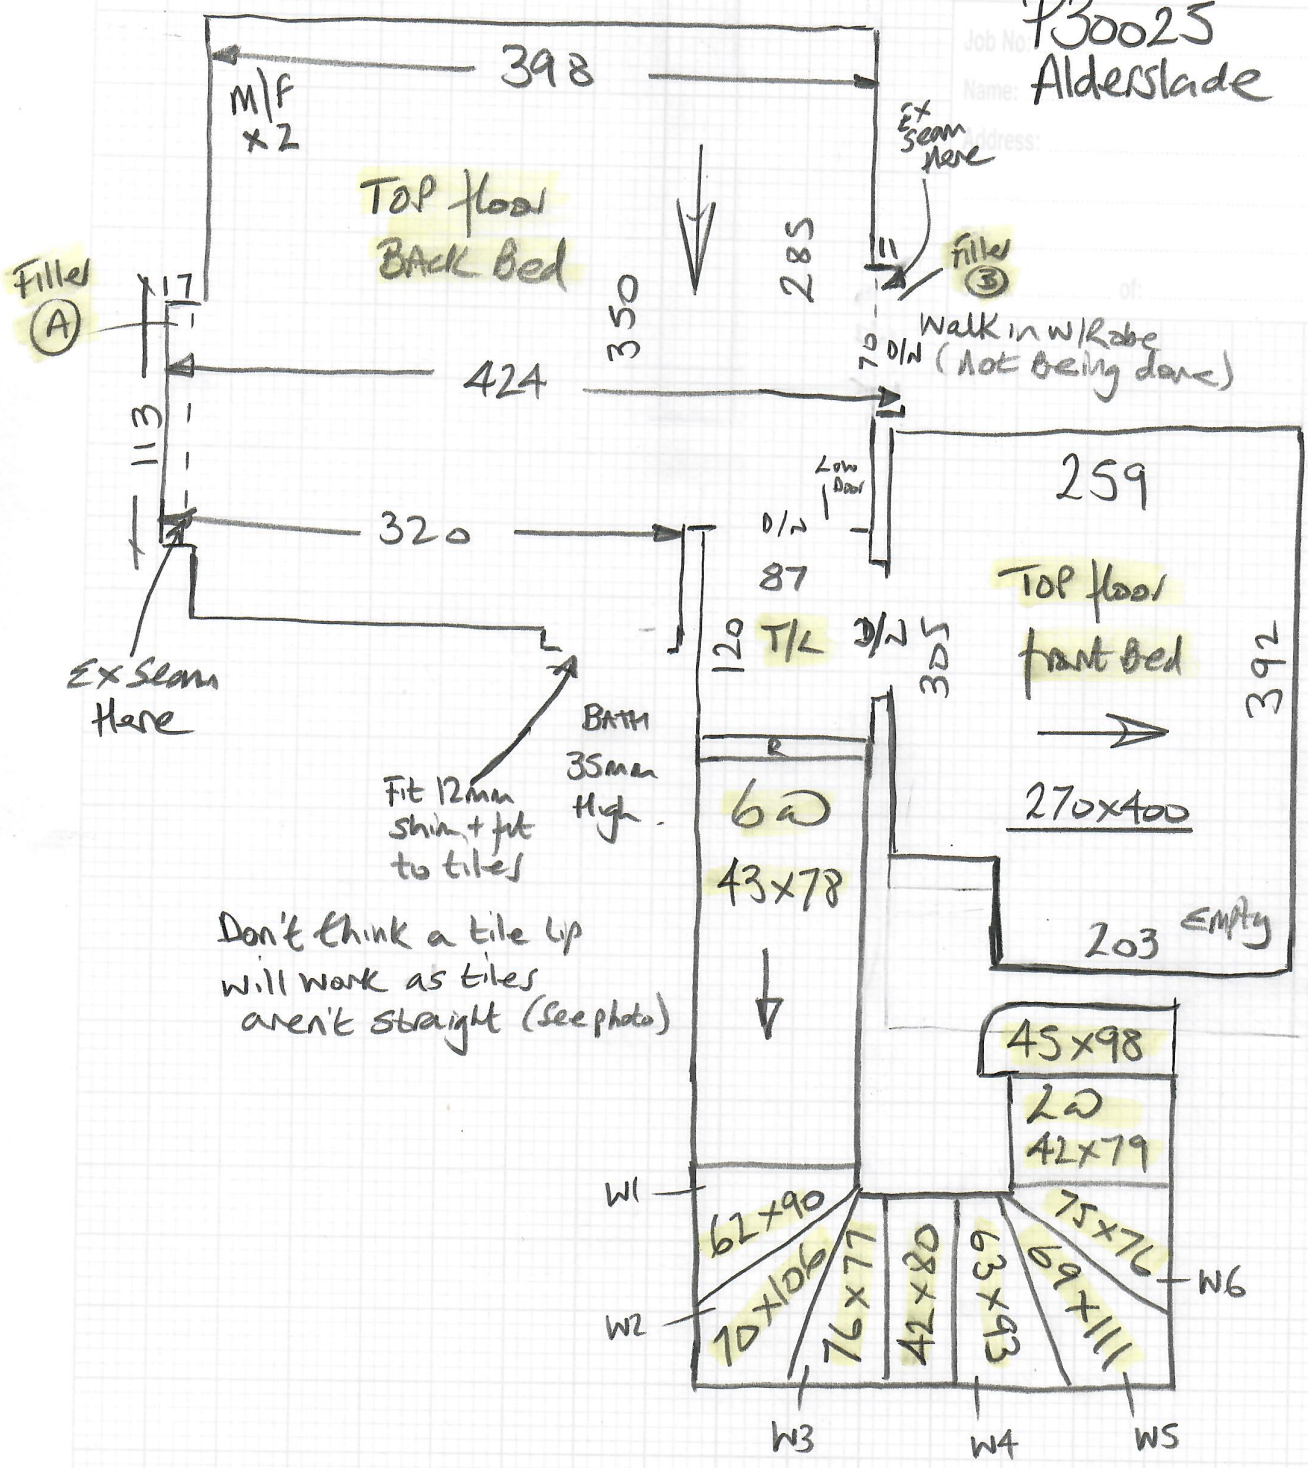 Job No: P30025
Name: Alderslade
Address:
of:
398
M/F
x 2
Ex
Seam
Here
TOP floor
BACK Bed
285
350
11
Filler
B
Filler
A
17
Walk in W/Robe
(Not Being done)
70
D/N
424
113
Low
Door
320
D/N
87
T/L
120
D/N
305
259
TOP floor
front Bed
392
270x400
Empty
203
Ex Seam
Here
BATH
35mm
High.
Fit 12mm
shim + fit
to tiles
R
6@
43x78
Don't think a tile lip
will work as tiles
aren't straight (see photo)
45x98
2@
42x79
W1
62x90
75x76
W6
W2
70x106
76x77
42x80
63x93
69x111
W3
W4
W5